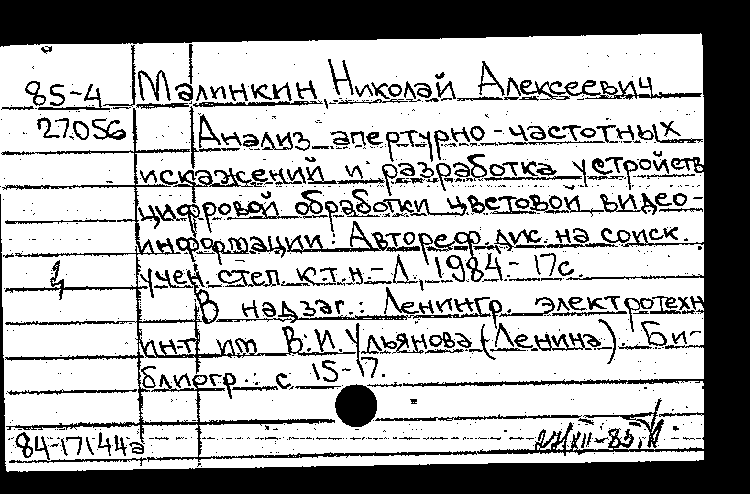 85-4 Малинкин, Николай Алексеевич.
27056 Анализ апертурно-частотных
искажений и разработка устройств
цифровой обработки цветовой видео-
информации: Автореф. дис. на соиск.
учен. степ. к.т.н. - Л., 1984.- 17с.
В надзаг.: Ленингр. электротехн
ин-т им В.И. Ульянова (Ленина). Би-
блиогр.: с 15-17.
84-17144а